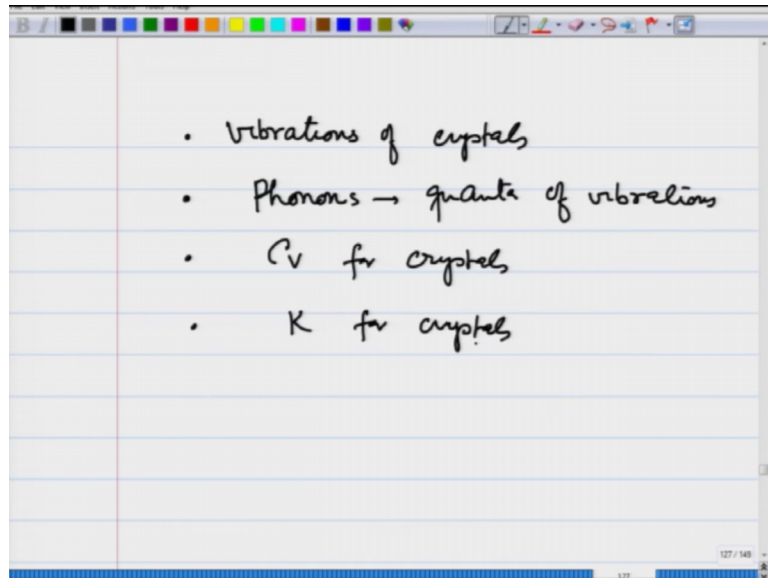 • vibrations of crystals
• Phonons → quanta of vibrations
• Cv for crystals
• K for crystals
127 / 149
127